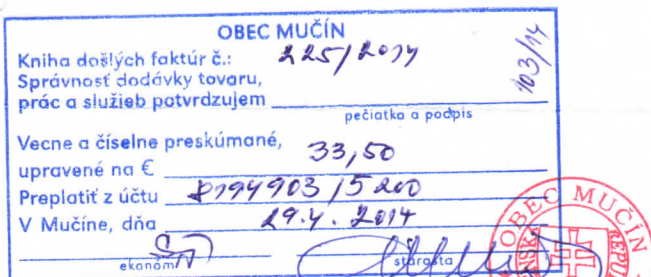 OBEC MUČÍN
Kniha došlých faktúr č.: 225/2014
103/14
Správnosť dodávky tovaru,
prác a služieb potvrdzujem
pečiatka a podpis
Vecne a číselne preskúmané,
upravené na € 33,50
Preplatiť z účtu 8194903/5200
V Mučíne, dňa 29.4.2014
ekonóm
starosta
OBEC MUČÍN